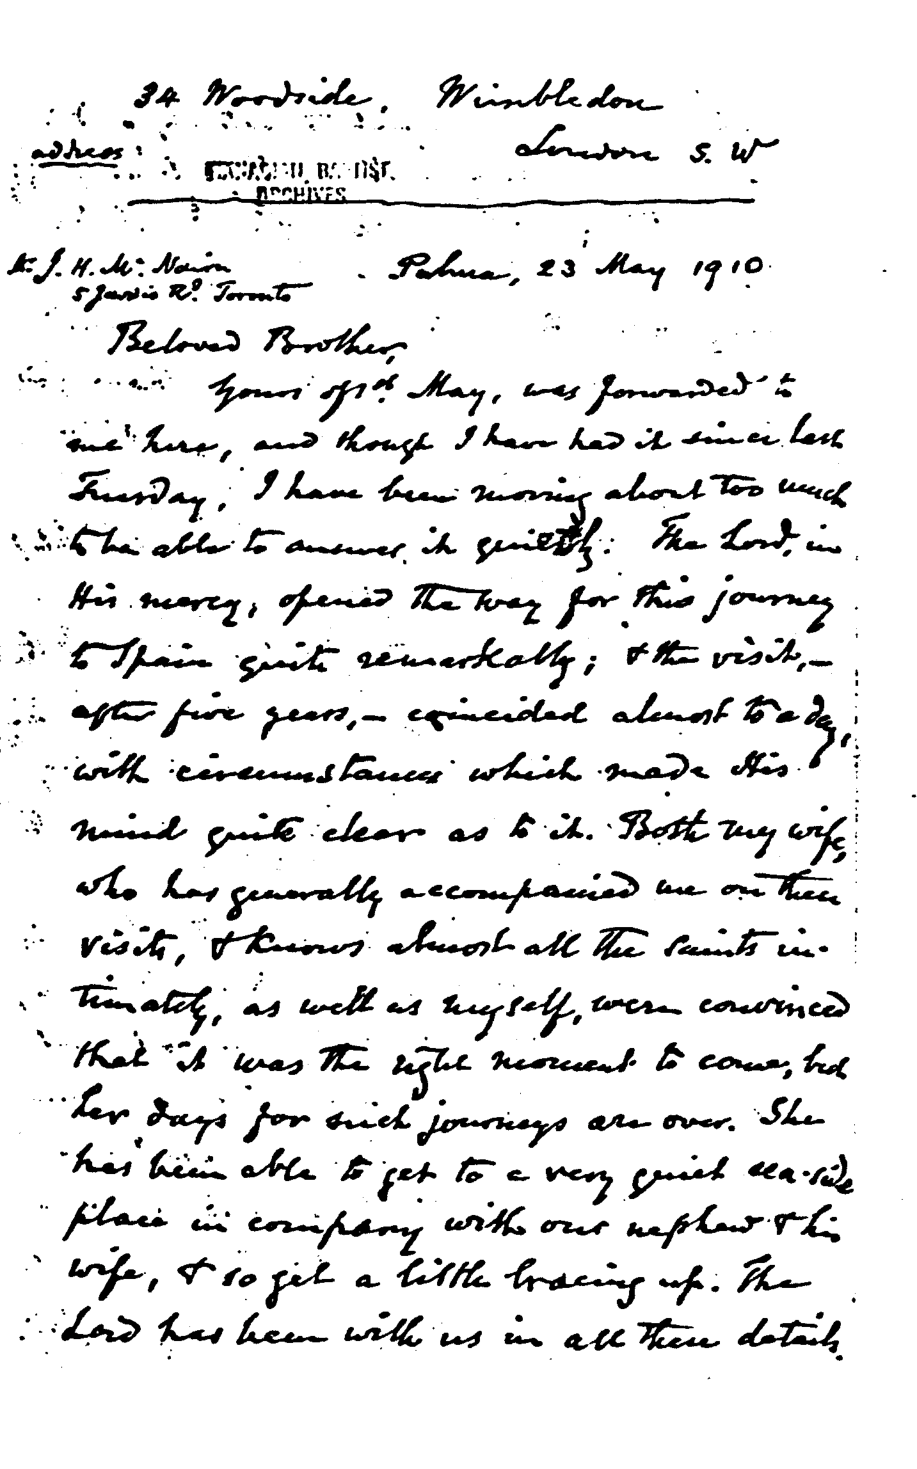 34 Woodside, Wimbledon
London S. W
address:
CANADIAN BAPTIST
ARCHIVES
J. H. Mc Nairn
5 Jarvis Rd. Toronto
Palma, 23 May 1910
Beloved Brother,
Yours of 1st. May, was forwarded to
me here, and though I have had it since last
Tuesday, I have been moving about too much
to be able to answer it quietly. The Lord, in
His mercy, opened the way for this journey
to Spain quite remarkably; & the visit, –
after five years, – coincided almost to a day,
with circumstances which made His
mind quite clear as to it. Both my wife,
who has generally accompanied me on these
visits, & knows almost all the saints in-
timately, as well as myself, were convinced
that it was the right moment to come, but
her days for such journeys are over. She
has been able to get to a very quiet sea-side
place in company with our nephew & his
wife, & so get a little bracing up. The
Lord has been with us in all these details.